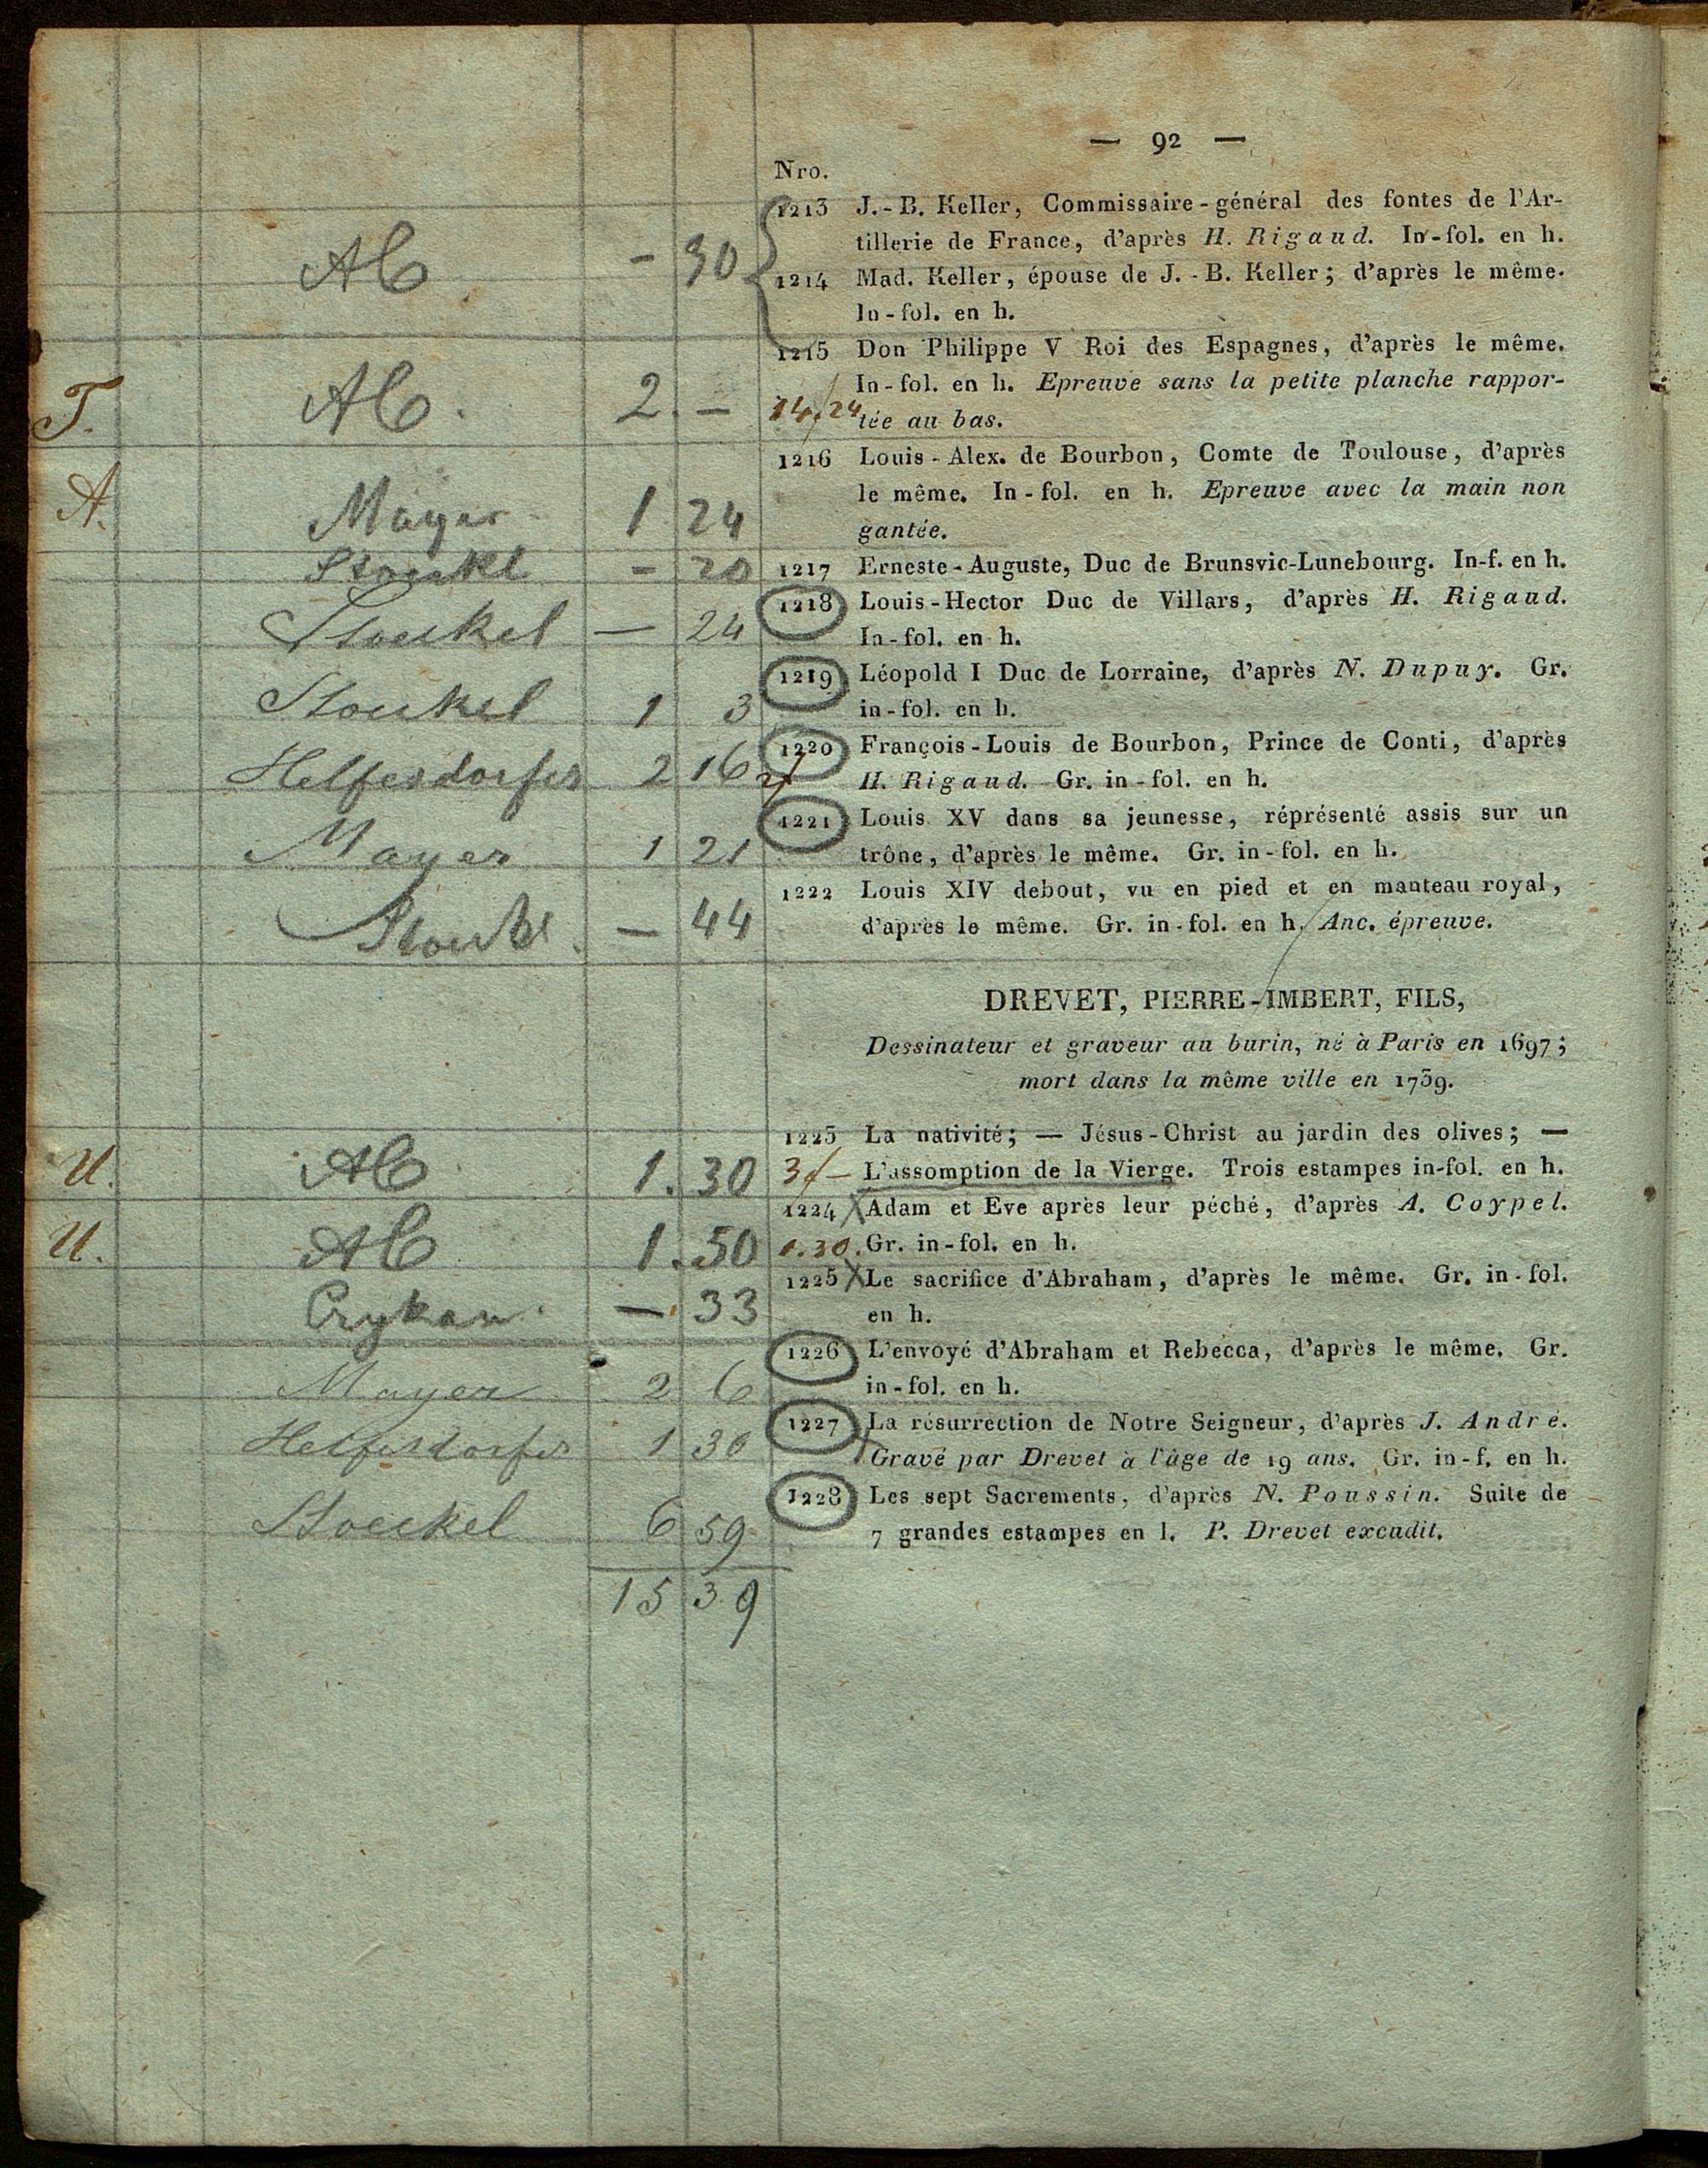 — 92 —
Nro.
1213 J.-B. Keller, Commissaire-général des fontes de l'Ar-
tillerie de France, d'après H. Rigaud. In-fol. en h.
AC - 30
1214 Mad. Keller, épouse de J.-B. Keller; d'après le même.
In-fol. en h.
1215 Don Philippe V Roi des Espagnes, d'après le même.
In-fol. en h. Epreuve sans la petite planche rappor-
T. AC. 2. - 14,24 tée au bas.
1216 Louis-Alex. de Bourbon, Comte de Toulouse, d'après
le même. In-fol. en h. Epreuve avec la main non
A. Mayer 1 24 gantée.
- 20 1217 Erneste-Auguste, Duc de Brunsvic-Lunebourg. In-f. en h.
Stoeckel — 24 1218 Louis-Hector Duc de Villars, d'après H. Rigaud.
In-fol. en h.
Stoeckel 1 3 1219 Léopold I Duc de Lorraine, d'après N. Dupuy. Gr.
in-fol. en h.
Helfesdorfer 2 16 1220 François-Louis de Bourbon, Prince de Conti, d'après
H. Rigaud. Gr. in-fol. en h.
Mayer 1 21 1221 Louis XV dans sa jeunesse, réprésenté assis sur un
trône, d'après le même. Gr. in-fol. en h.
— 44 1222 Louis XIV debout, vu en pied et en manteau royal,
d'après le même. Gr. in-fol. en h. Anc. épreuve.
DREVET, PIERRE-IMBERT, FILS,
Dessinateur et graveur au burin, né à Paris en 1697;
mort dans la même ville en 1739.
1223 La nativité; — Jésus-Christ au jardin des olives; —
U. AC 1. 30 3f— L'assomption de la Vierge. Trois estampes in-fol. en h.
1224 Adam et Eve après leur péché, d'après A. Coypel.
U. AC 1. 50 1.30. Gr. in-fol. en h.
1225 Le sacrifice d'Abraham, d'après le même. Gr. in-fol.
— 33 en h.
Mayer 2 6 1226 L'envoyé d'Abraham et Rebecca, d'après le même. Gr.
in-fol. en h.
Helfesdorfer 1 36 1227 La résurrection de Notre Seigneur, d'après J. André.
Gravé par Drevet à l'âge de 19 ans. Gr. in-f. en h.
Stoeckel 6 59 1228 Les sept Sacrements, d'après N. Poussin. Suite de
7 grandes estampes en l. P. Drevet excudit.
15 39